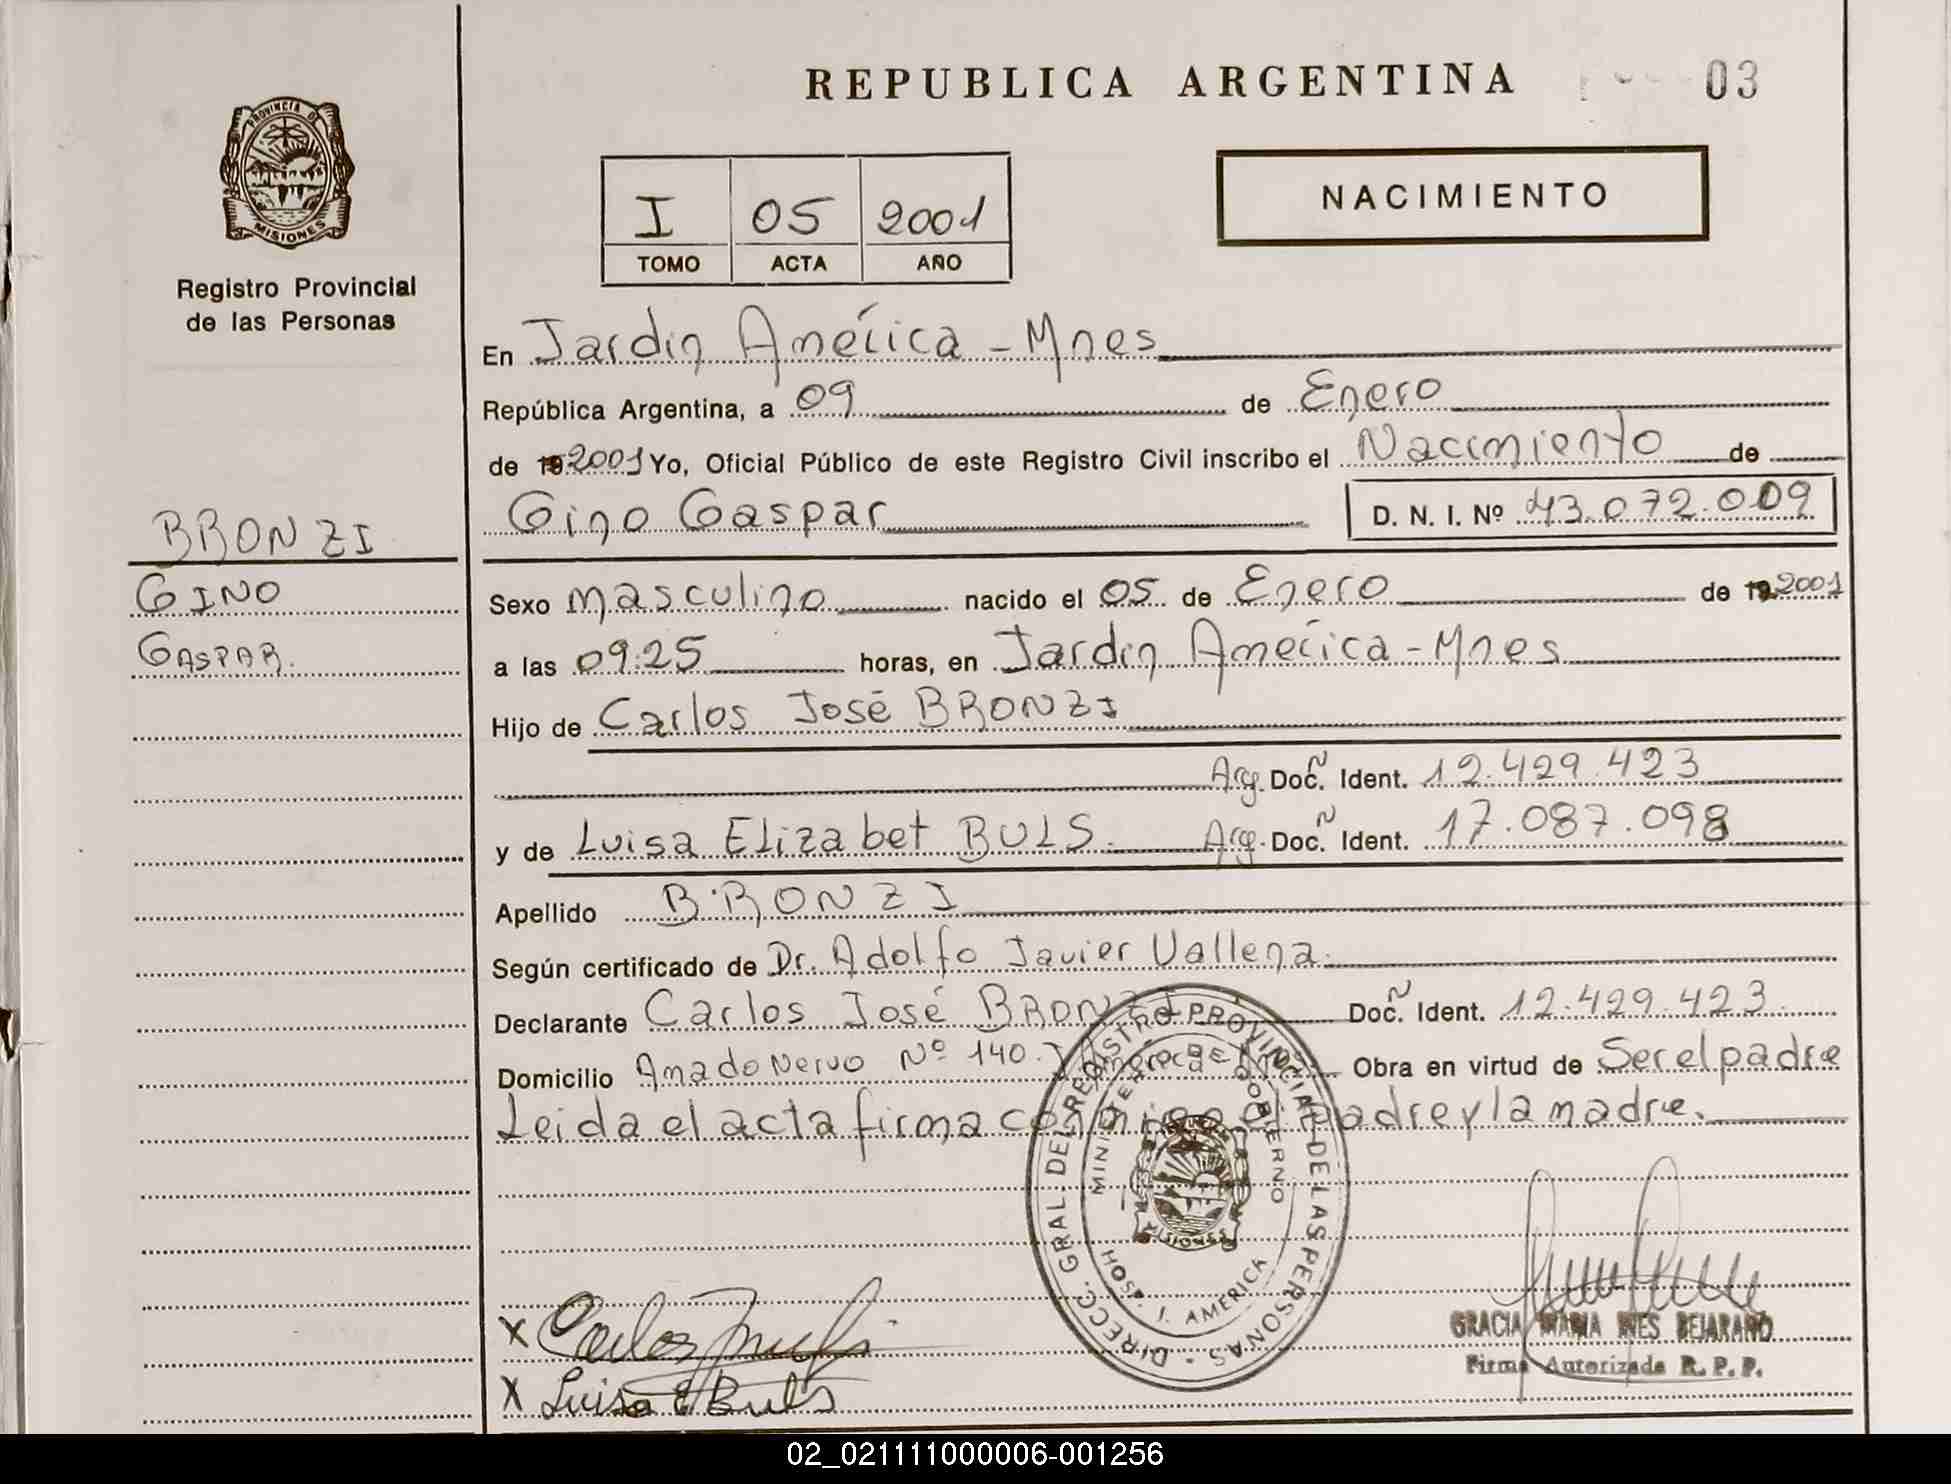 REPUBLICA ARGENTINA
03
PROVINCIA DE
MISIONES
Registro Provincial
de las Personas
I 05 2001
TOMO ACTA AÑO
NACIMIENTO
En Jardin América - Mnes
República Argentina, a 09 de Enero
de 19 2001 Yo, Oficial Público de este Registro Civil inscribo el Nacimiento de
Gino Gaspar D. N. I. Nº 43.072.009
BRONZI
GINO
GASPAR.
Sexo masculino nacido el 05 de Enero de 19 2001
a las 09:25 horas, en Jardin América - Mnes
Hijo de Carlos José BRONZI
Arg. Doc. Ident. 12.429.423
y de Luisa Elizabet BULS. Arg. Doc. Ident. 17.087.098
Apellido BRONZI
Según certificado de Dr. Adolfo Javier Vallena.
Declarante Carlos José BRONZI Doc. Ident. 12.429.423.
Domicilio Amado Nervo Nº 140. J. América Mnes Obra en virtud de Ser el padre
Leida el acta firma conmigo el padre y la madre.
DIRECC. GRAL DEL REGISTRO PROVINCIAL DE LAS PERSONAS
MINISTERIO DE GOBIERNO
MISIONES
HOSP. J. AMERICA
X Carlos
X Luisa E Buls
GRACIA MARIA INES BEJARANO
Firma Autorizada R. P. P.
02_021111000006-001256